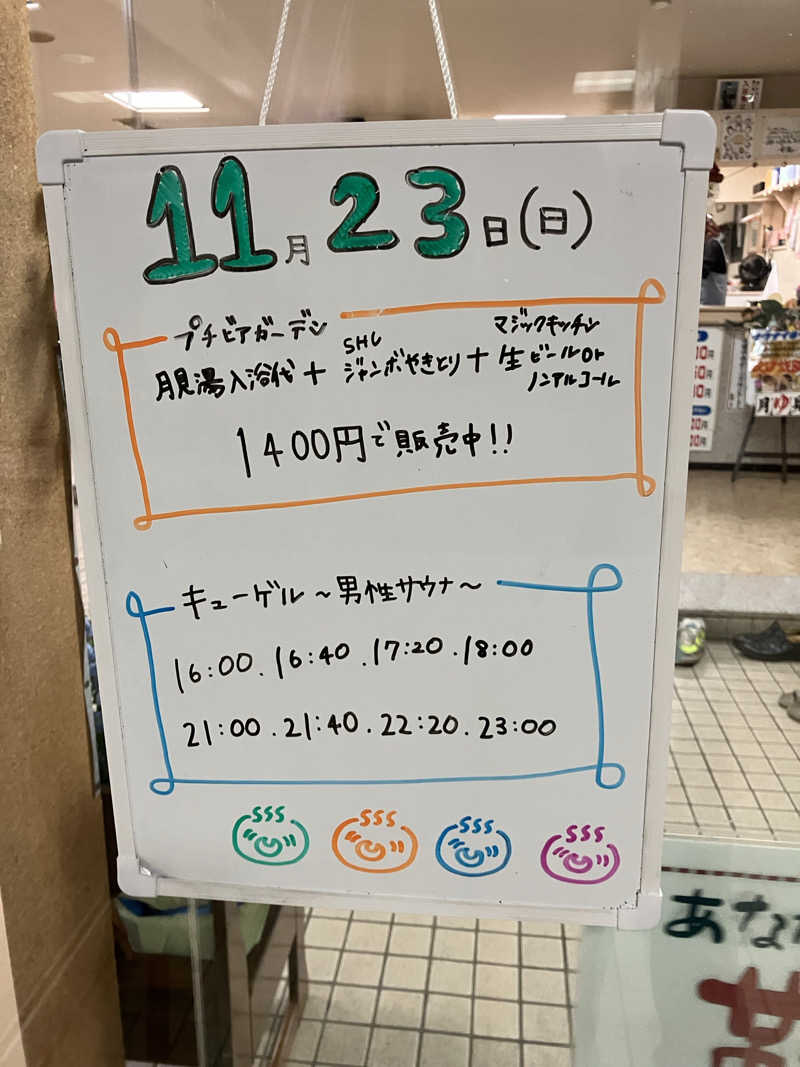 11月23日(日)
プチビアガーデン
SHU
マジックキッチン
月見湯入浴代+ジャンボやきとり+生ビールor
ノンアルコール
1400円で販売中!!
キューゲル~男性サウナ~
16:00.16:40.17:20.18:00
21:00.21:40.22:20.23:00
sss sss sss sss
あな